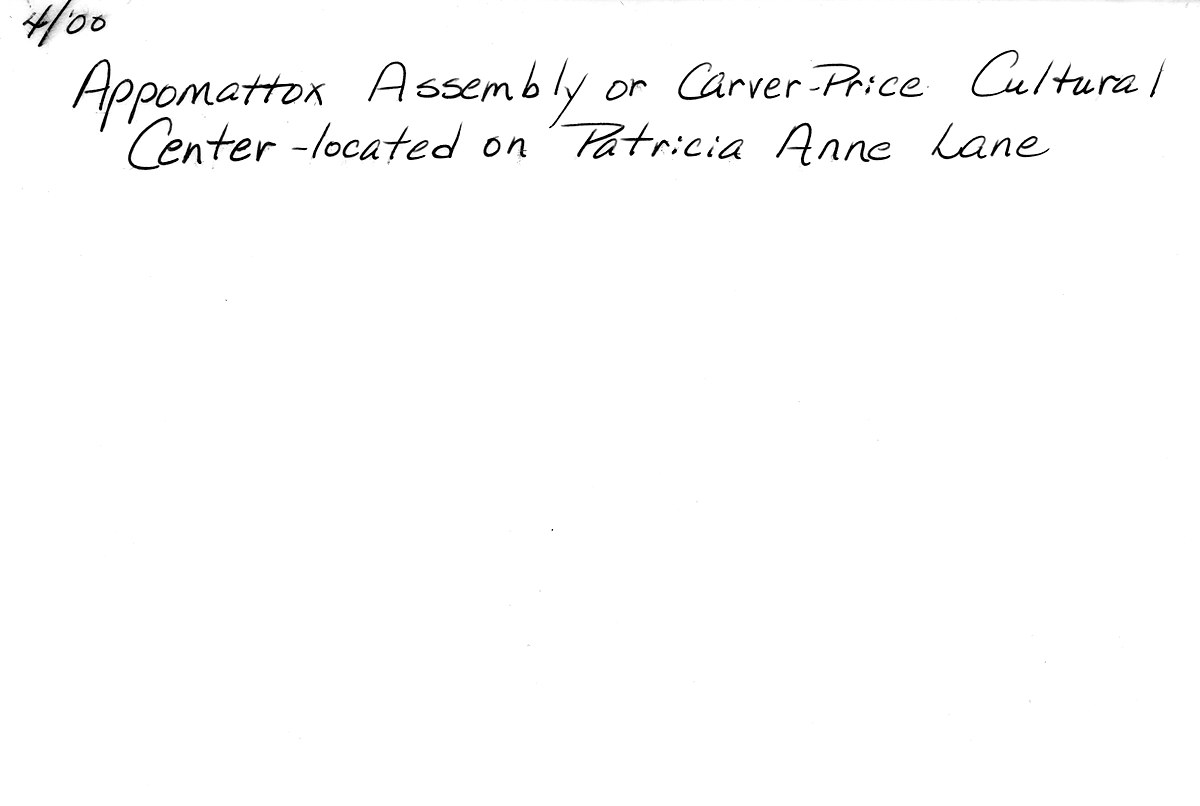 4/'00
Appomattox Assembly or Carver-Price Cultural
Center - located on Patricia Anne Lane